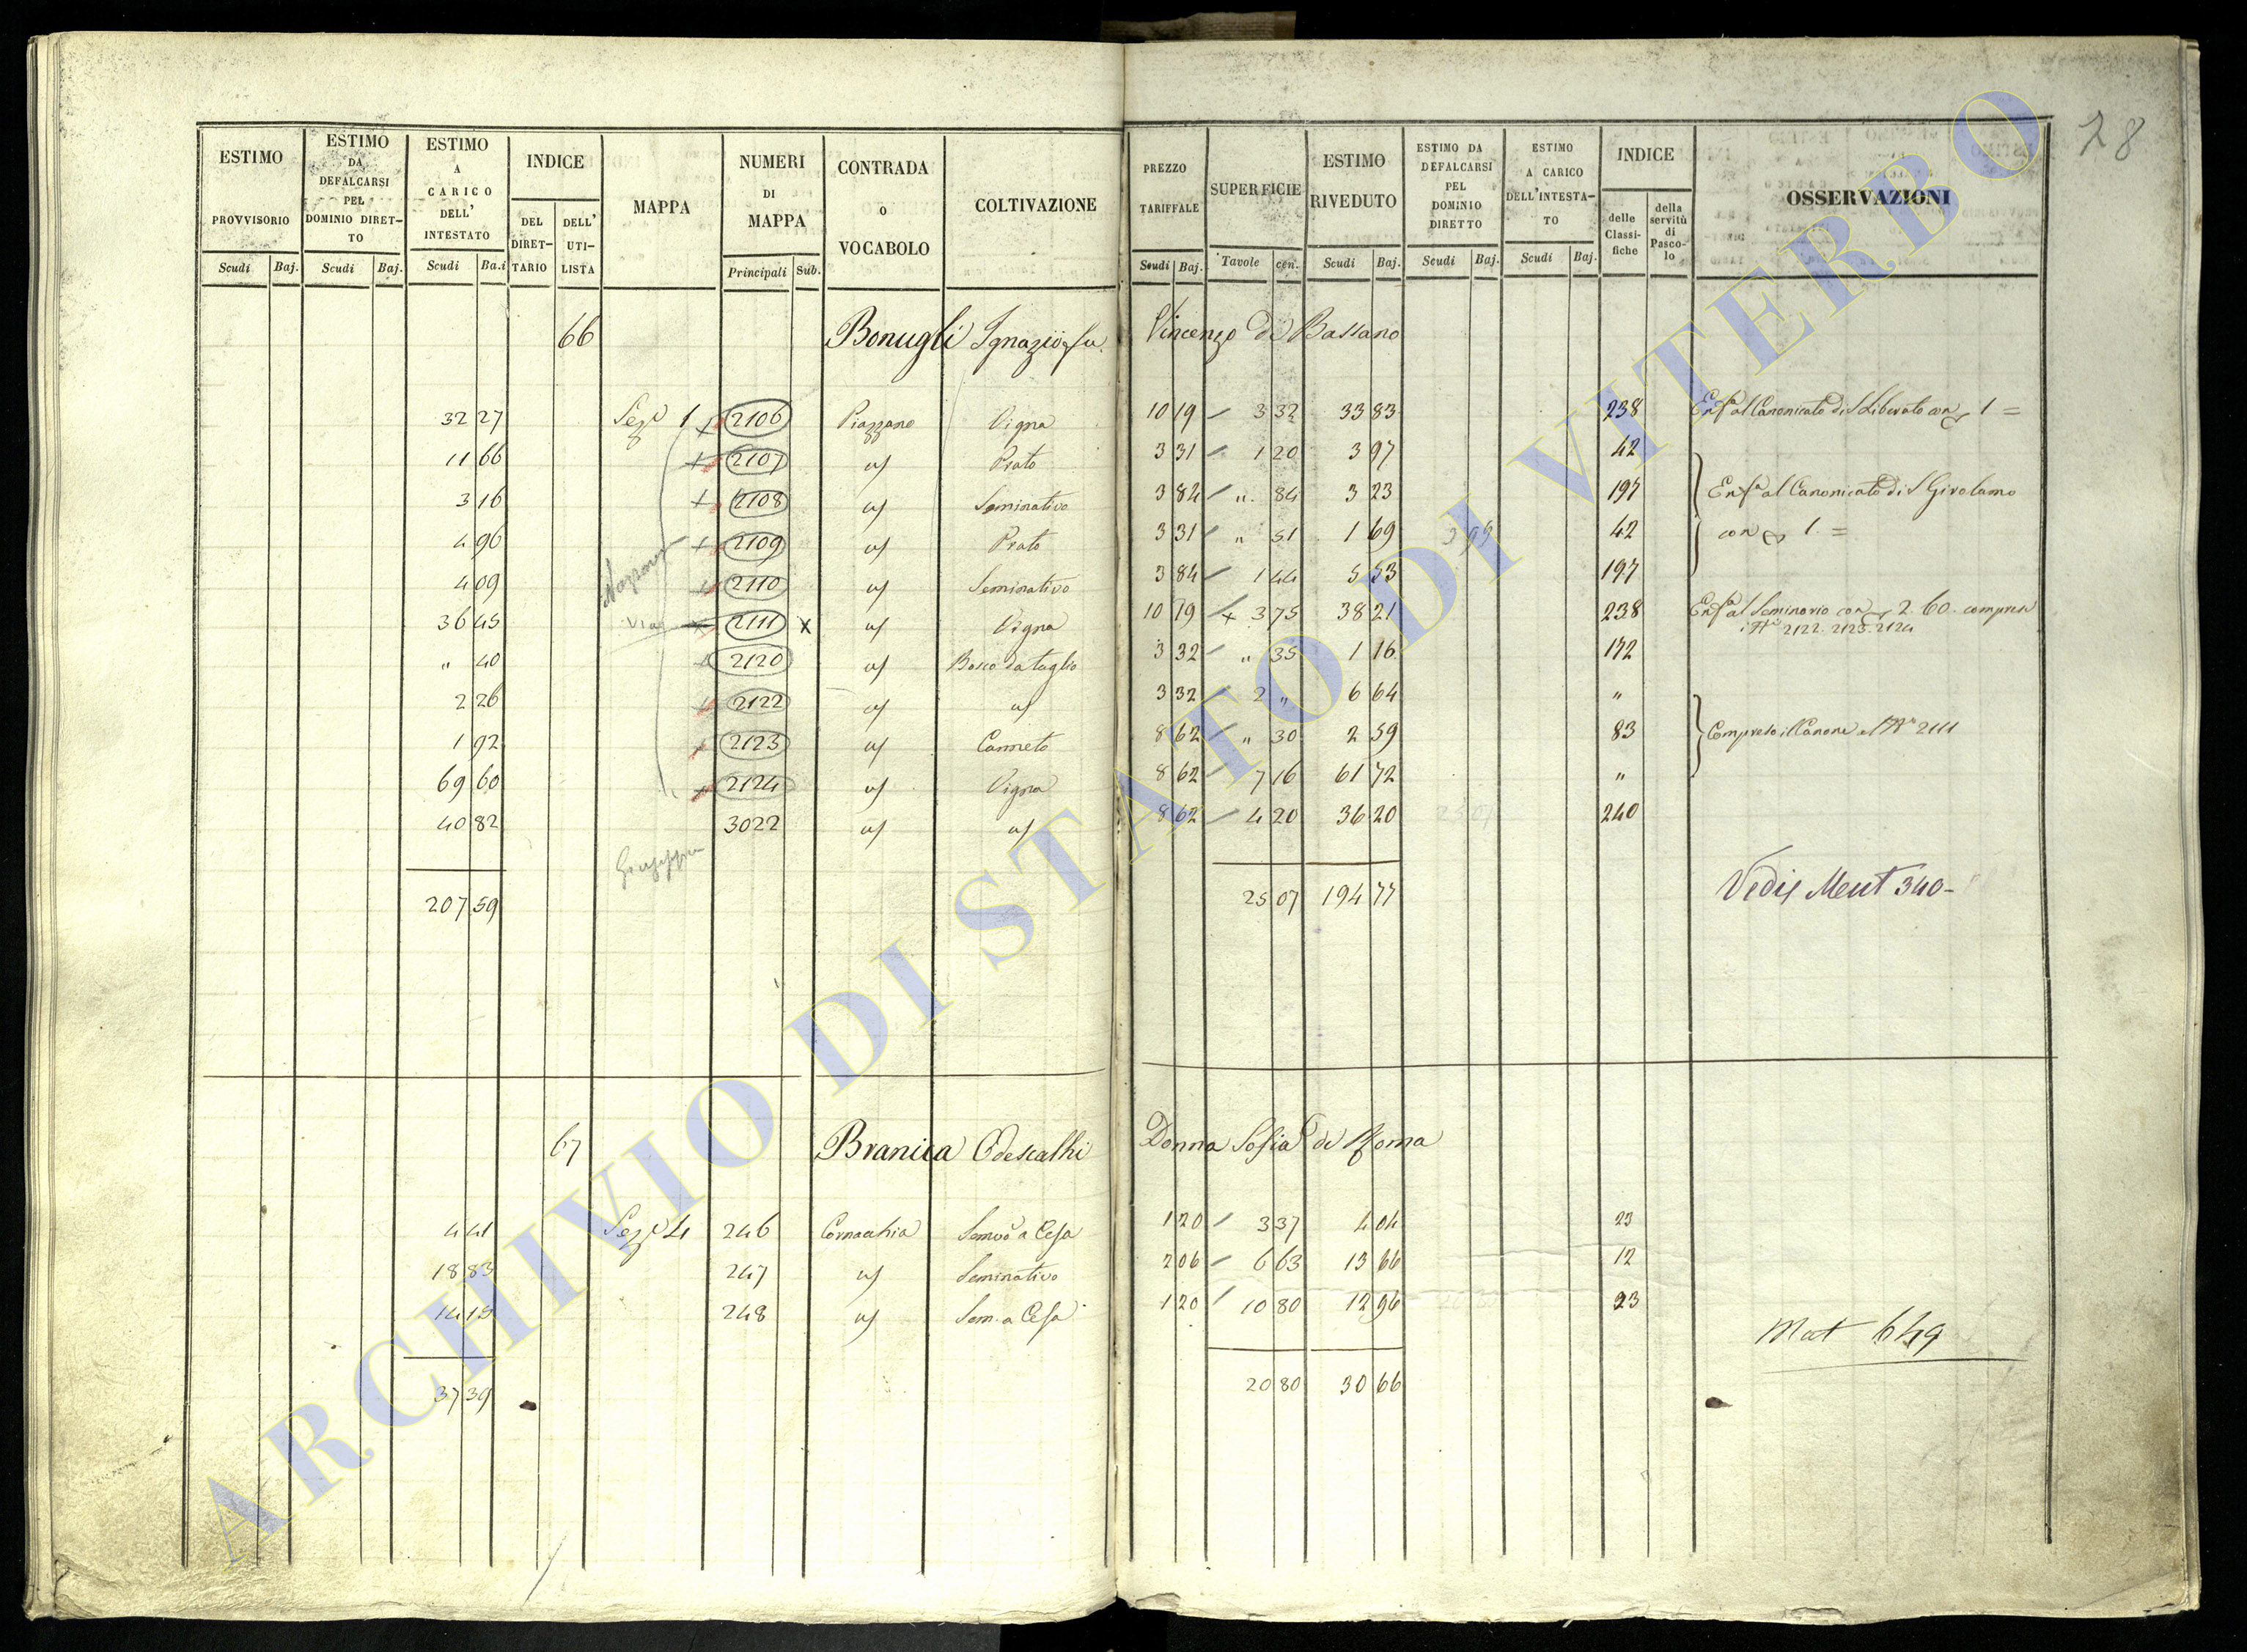 28
ESTIMO PROVVISORIO Scudi Baj.
ESTIMO DA DEFALCARSI PEL DOMINIO DIRETTO Scudi Baj.
ESTIMO A CARICO DELL' INTESTATO Scudi Ba.i
INDICE DEL DIRETTARIO DELL' UTILISTA
MAPPA
NUMERI DI MAPPA Principali Sub.
CONTRADA O VOCABOLO
COLTIVAZIONE
PREZZO TARIFFALE Scudi Baj.
SUPERFICIE Tavole cen.
ESTIMO RIVEDUTO Scudi Baj.
ESTIMO DA DEFALCARSI PEL DOMINIO DIRETTO Scudi Baj.
ESTIMO A CARICO DELL'INTESTATO Scudi Baj.
INDICE delle Classifiche della servitù di Pascolo
OSSERVAZIONI
66 Bonugli Ignazio fu Vincenzo di Bassano
32 27 Sez.e 1 2106 Piazzano Vigna 10 19 3 32 33 83 238 Enf.a al Canonicato di S Liberato con 1 =
11 66 2107 " Prato 3 31 1 20 3 97 42
3 16 2108 " Seminativo 3 84 " 84 3 23 197 Enf.a al Canonicato di S Girolamo
4 96 2109 " Prato 3 31 " 51 1 69 42 con 1. =
4 09 2110 " Seminativo 3 84 1 44 5 53 197
36 45 via 2111 x " Vigna 10 19 x 3 75 38 21 238 Enf.a al Seminario con 2. 60. compresi
i N.i 2122. 2123. 2124
" 40 2120 " Bosco da taglio 3 32 " 35 1 16 172
2 26 2122 " " 3 32 2 " 6 64 "
1 92 2123 " Canneto 8 62 " 30 2 59 83 Compreso il Canone al N.o 2111
69 60 2124 " Vigna 8 62 7 16 61 72 "
40 82 3022 " " 8 62 4 20 36 20 240
207 59 25 07 194 77 Vedi Ment 340-
67 Branica Odescalhi Donna Sofia di Roma
4 41 Sez.e 4 246 Cornacchia Semvo a Cesa 1 20 3 37 4 04 23
18 83 247 " Seminativo 2 06 6 63 13 66 12
14 15 248 " Sem. a Cesa 1 20 10 80 12 96 23
Mat 649
37 39 20 80 30 66
ARCHIVIO DI STATO DI VITERBO